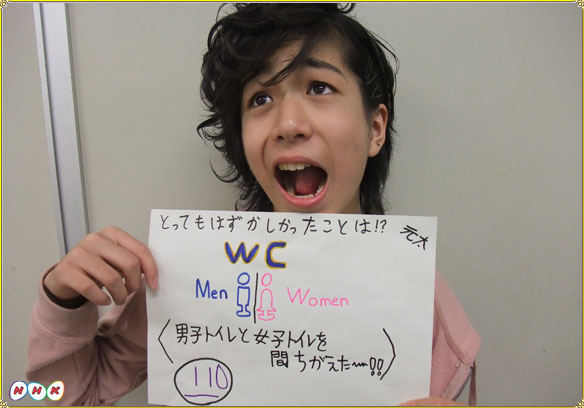 とってもはずかしかったことは!?
元太
WC
Men Women
〈男子トイレと女子トイレを
間ちがえた〜!!〉
110
NHK